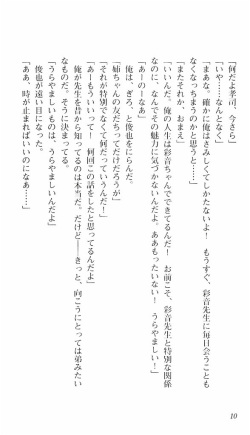 「何だよ孝司、今さら」
「いや……なんとなく」
「まあな。確かに俺はさみしくてしかたないよ！　もうすぐ、彩音先生に毎日会うことも
なくなっちまうのかと思うと……」
「またそれか、おまえ」
「いいんだ。俺の人生は彩音ちゃんでできてるんだ！　お前こそ、彩音先生と特別な関係
なのに、なんでその魅力に気づかないんだよ、ああもったいない！　うらやましい！」
「あーのーなあ」
俺は、ぎろ、と俊也をにらんだ。
「姉ちゃんの友だちってだけだろうが」
「それが特別でなくて何だっていうんだ！」
「あーもういいって！　何回この話をしたと思ってるんだよ」
俺が先生を昔から知ってるのは本当だ、だけど――きっと、向こうにとっては弟みたい
なものだ。そうに決まってる。
「うらやましいものは、うらやましいんだよ」
俊也が遠い目になった。
「ああ、時が止まればいいのになあ……」
10